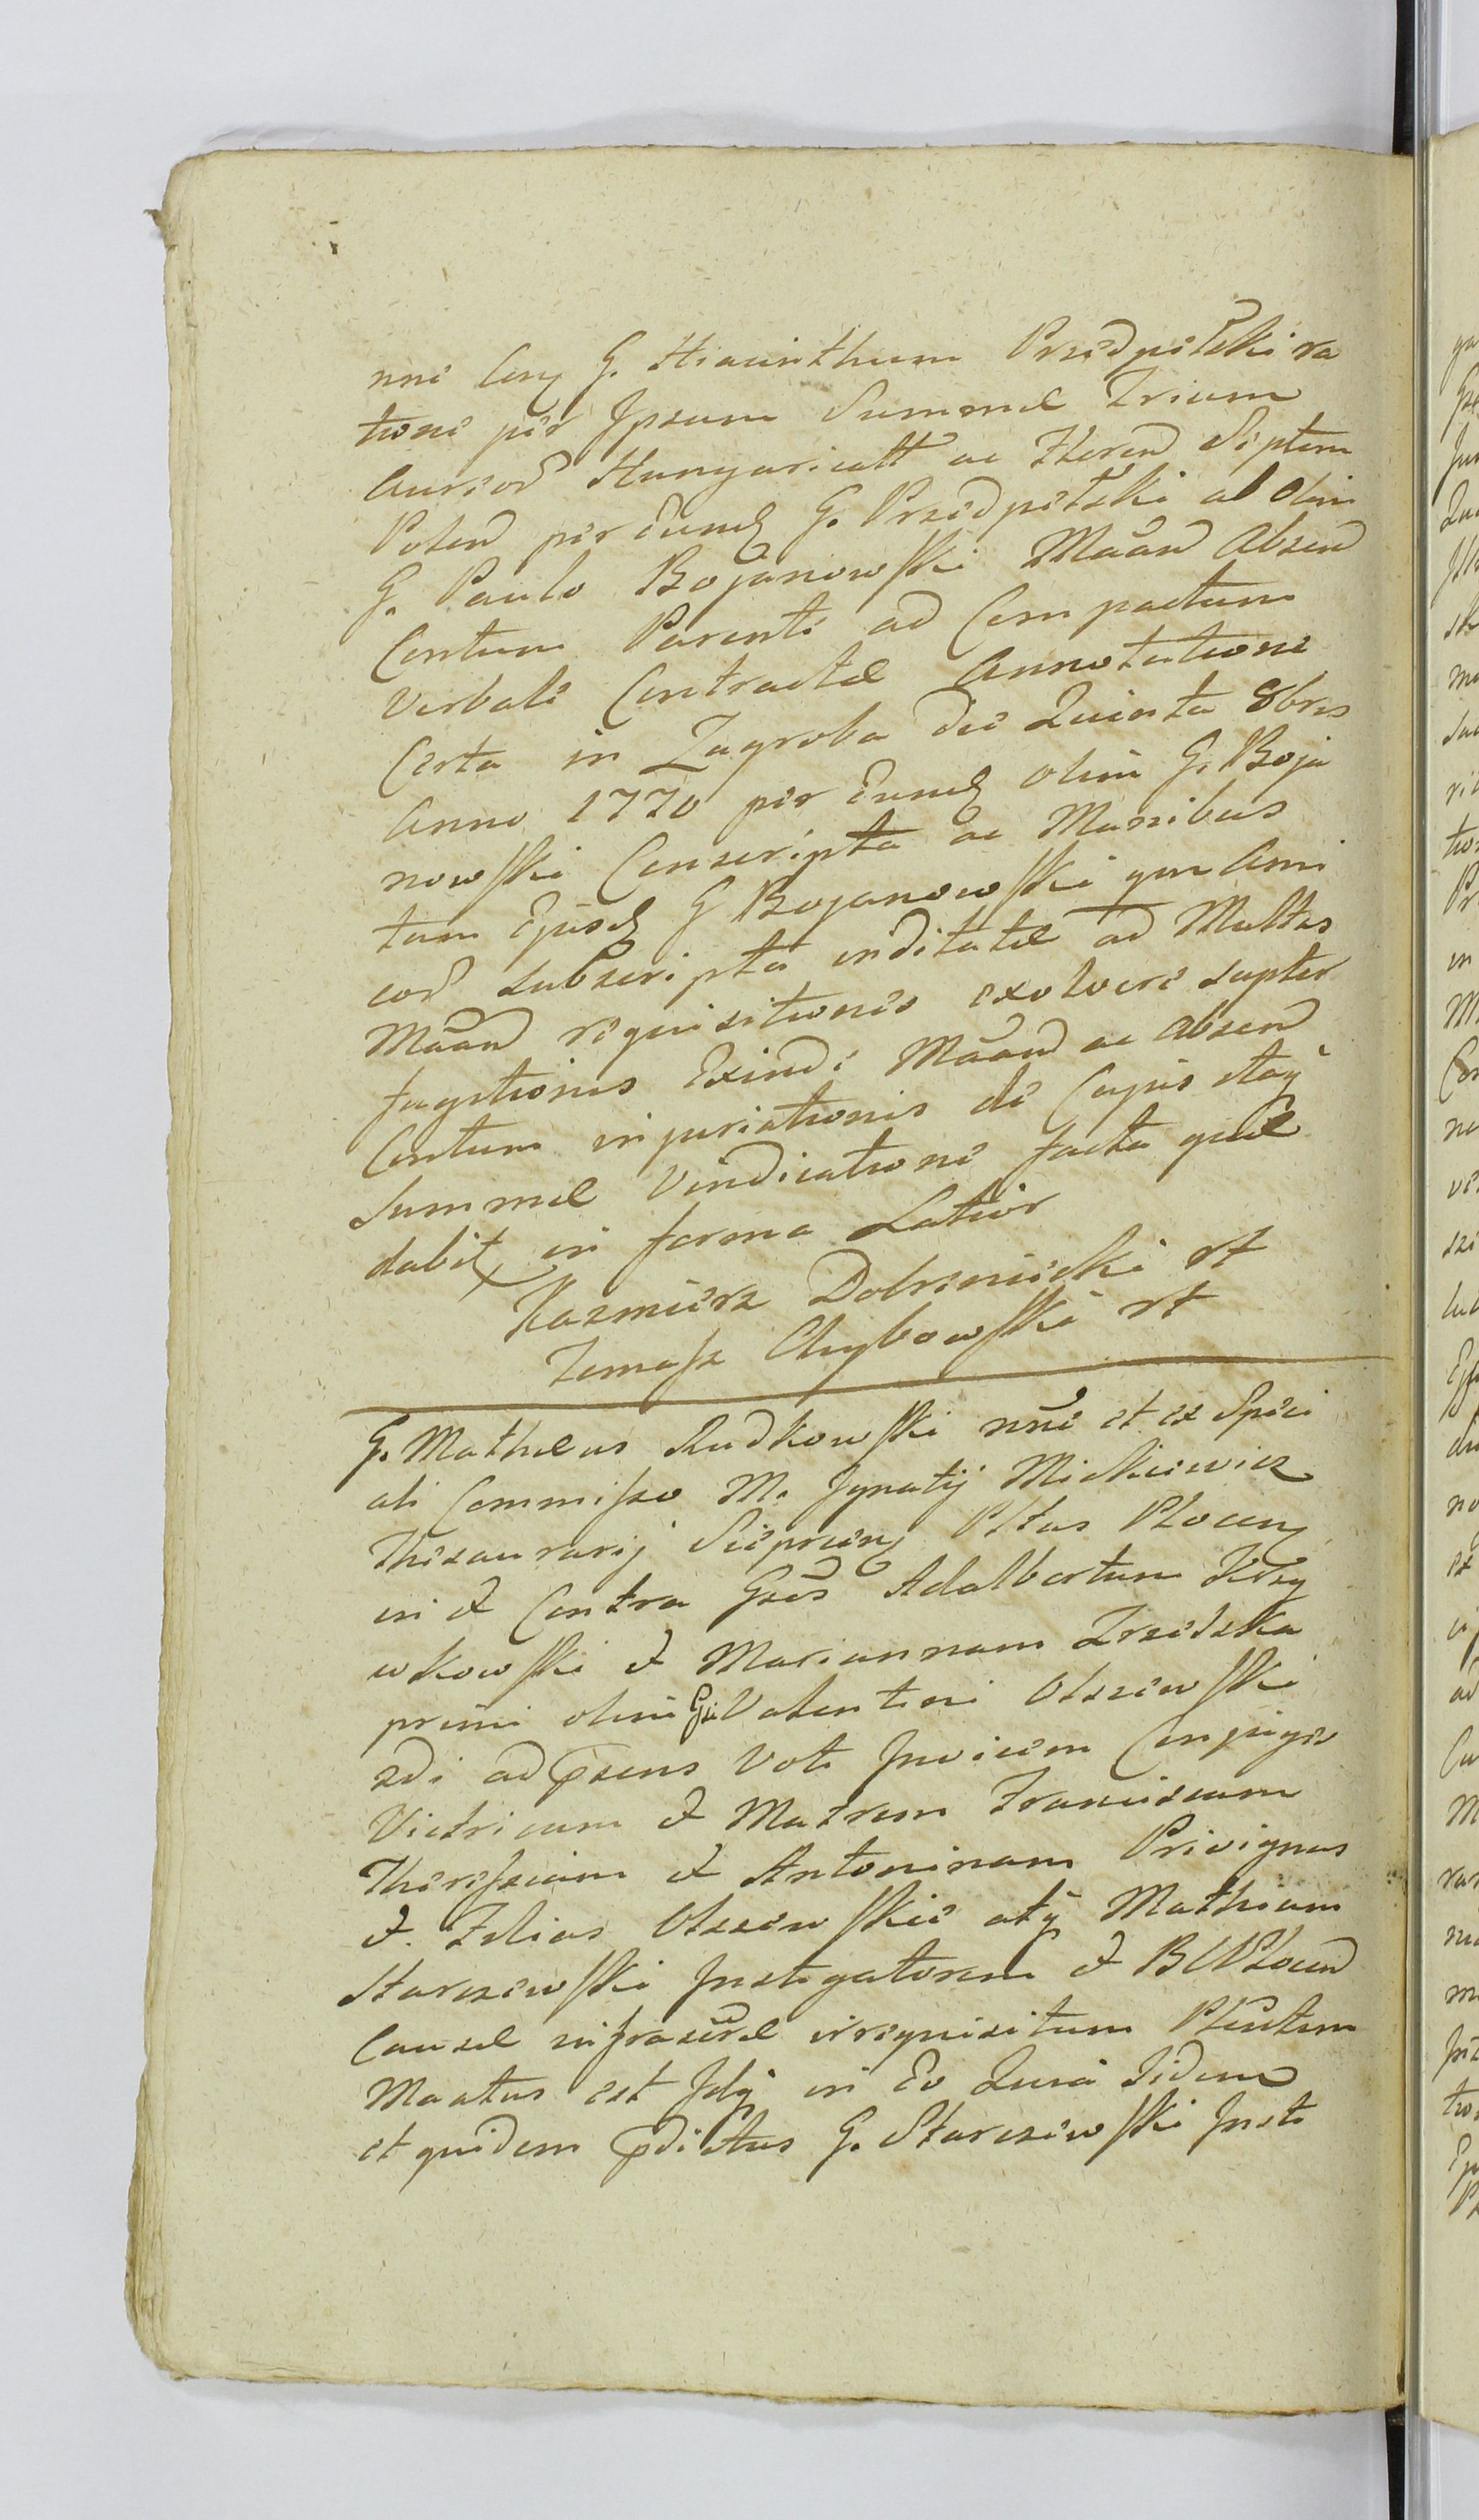 nni Cenz G. Hiacinthum Przedpełski ra
tione per Ipsum Summae Trium
Aureor Hungaricatt ac Floren Septem
Polen per eundz G. Przedpełski ab olim
G. Paulo Bojanowski Maan Absen
Centum Parenti ad Compactum
Verbali Contractae Annotatione
Certa in Zagroba die Quinta 8bris
Anno 1770 per Eundz olim G. Boja
nowski Conscripta ac Manibus
tam Ejusdz G Bojanowski qm Ami
cor Subscripta inditatae ad Multas
Maan requisitiones exolvere supter
fugitionis Exinde Maan ac Absen
Centum injuriationis de Cujus itaq
Summae Vindicatione facta quae
dabit in forma Latior
Kazmierz Dobrzeniecki rt
Tomasz Chybowski rt
G. Mathaeus Rudkowski nne et ex Speci
ali Commisso M. Ignatij Mickiewicz
Thesaurarij Sieprcenz Pttus Plocenz
in et Contra Gsos Adalbertum Krzy
wkowski et Mariannam Trzeiska
primi olim Gsi Valentini Olszewski
2di ad psens Voti Invicem Conjuges
Victricum et Matrem Franciscum
Theressiam et Antoninam Privignus
et Filias Olszewskie atq Mathiam
Starczewski Instigatorem et B
Causae infrascrae irrequisitum
Maatus est in Eo Quia Iidem
et quidem pdictus G. Starczewski Insti